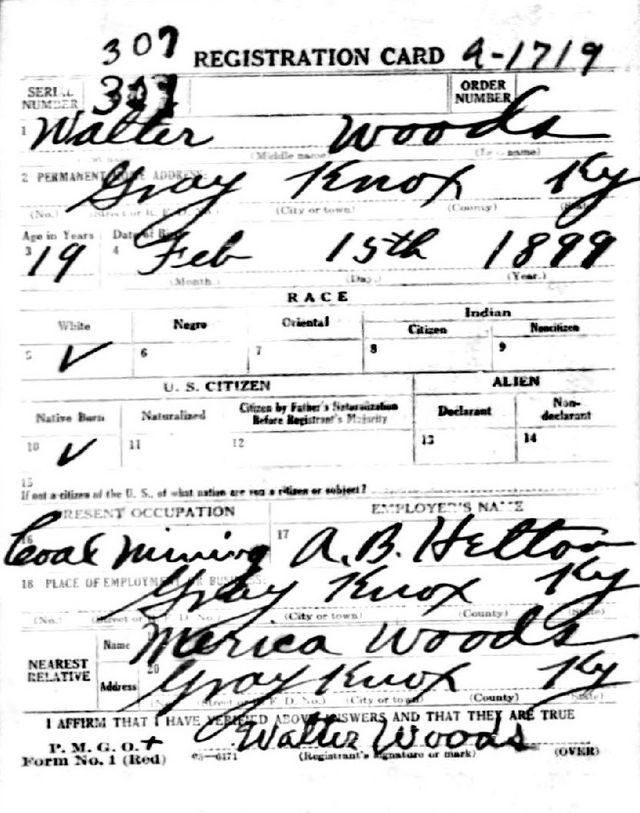 307
REGISTRATION CARD A-1719
SERIAL NUMBER 307 ORDER NUMBER
1 Walter Woods
(Middle name) (Last name)
2 PERMANENT HOME ADDRESS:
Gray Knox Ky
(No.) (Street or R. F. D. No.) (City or town) (County) (State)
Age in Years Date of Birth
3 19 4 Feb 15th 1899
(Month.) (Day.) (Year.)
RACE
White Negro Oriental Indian
Citizen Noncitizen
5 ✓ 6 7 8 9
U. S. CITIZEN ALIEN
Native Born Naturalized Citizen by Father's Naturalization Before Registrant's Majority Declarant Non-declarant
10 ✓ 11 12 13 14
15
If not a citizen of the U. S., of what nation are you a citizen or subject?
PRESENT OCCUPATION EMPLOYER'S NAME
16 Coal Mining 17 A. B. Helton
18 PLACE OF EMPLOYMENT OR BUSINESS:
Gray Knox Ky
(No.) (Street or R. F. D. No.) (City or town) (County) (State)
NEAREST RELATIVE Name Merica Woods
Address 20 Gray Knox Ky
(No.) (Street or R. F. D. No.) (City or town) (County) (State)
I AFFIRM THAT I HAVE VERIFIED ABOVE ANSWERS AND THAT THEY ARE TRUE
P. M. G. O. + Walter Woods
Form No. 1 (Red) (Registrant's signature or mark) (OVER)